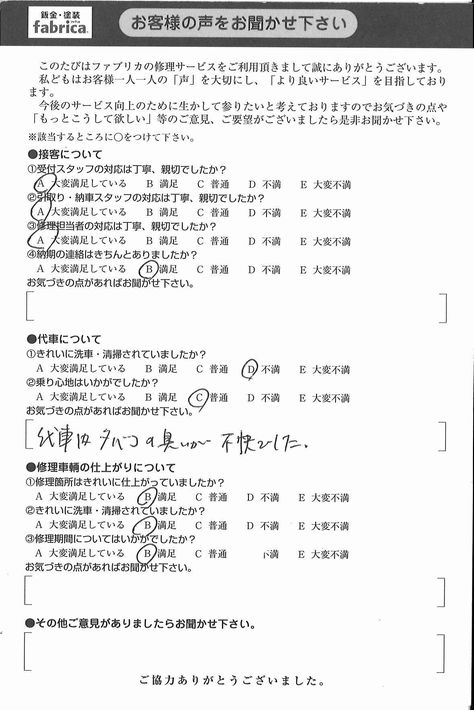 鈑金・塗装
fabrica.
お客様の声をお聞かせ下さい
このたびはファブリカの修理サービスをご利用頂きまして誠にありがとうございます。
私どもはお客様一人一人の「声」を大切にし、「より良いサービス」を目指しております。
ます。
今後のサービス向上のために生かして参りたいと考えておりますのでお気づきの点や
「もっとこうして欲しい」等のご意見、ご要望がございましたら是非お聞かせ下さい。
※該当するところに○をつけて下さい。
●接客について
①受付スタッフの対応は丁寧、親切でしたか?
A 大変満足している B 満足 C 普通 D 不満 E 大変不満
②引取り・納車スタッフの対応は丁寧、親切でしたか?
A 大変満足している B 満足 C 普通 D 不満 E 大変不満
③修理担当者の対応は丁寧、親切でしたか?
A 大変満足している B 満足 C 普通 D 不満 E 大変不満
④納期の連絡はきちんとありましたか?
A 大変満足している B 満足 C 普通 D 不満 E 大変不満
お気づきの点があればお聞かせ下さい。
●代車について
①きれいに洗車・清掃されていましたか?
A 大変満足している B 満足 C 普通 D 不満 E 大変不満
②乗り心地はいかがでしたか?
A 大変満足している B 満足 C 普通 D 不満 E 大変不満
お気づきの点があればお聞かせ下さい。
代車はタバコの臭いが不快でした。
●修理車輌の仕上がりについて
①修理箇所はきれいに仕上がっていましたか?
A 大変満足している B 満足 C 普通 D 不満 E 大変不満
②きれいに洗車・清掃されていましたか?
A 大変満足している B 満足 C 普通 D 不満 E 大変不満
③修理期間についてはいかがでしたか?
A 大変満足している B 満足 C 普通 不満 E 大変不満
お気づきの点があればお聞かせ下さい。
●その他ご意見がありましたらお聞かせ下さい。
ご協力ありがとうございました。